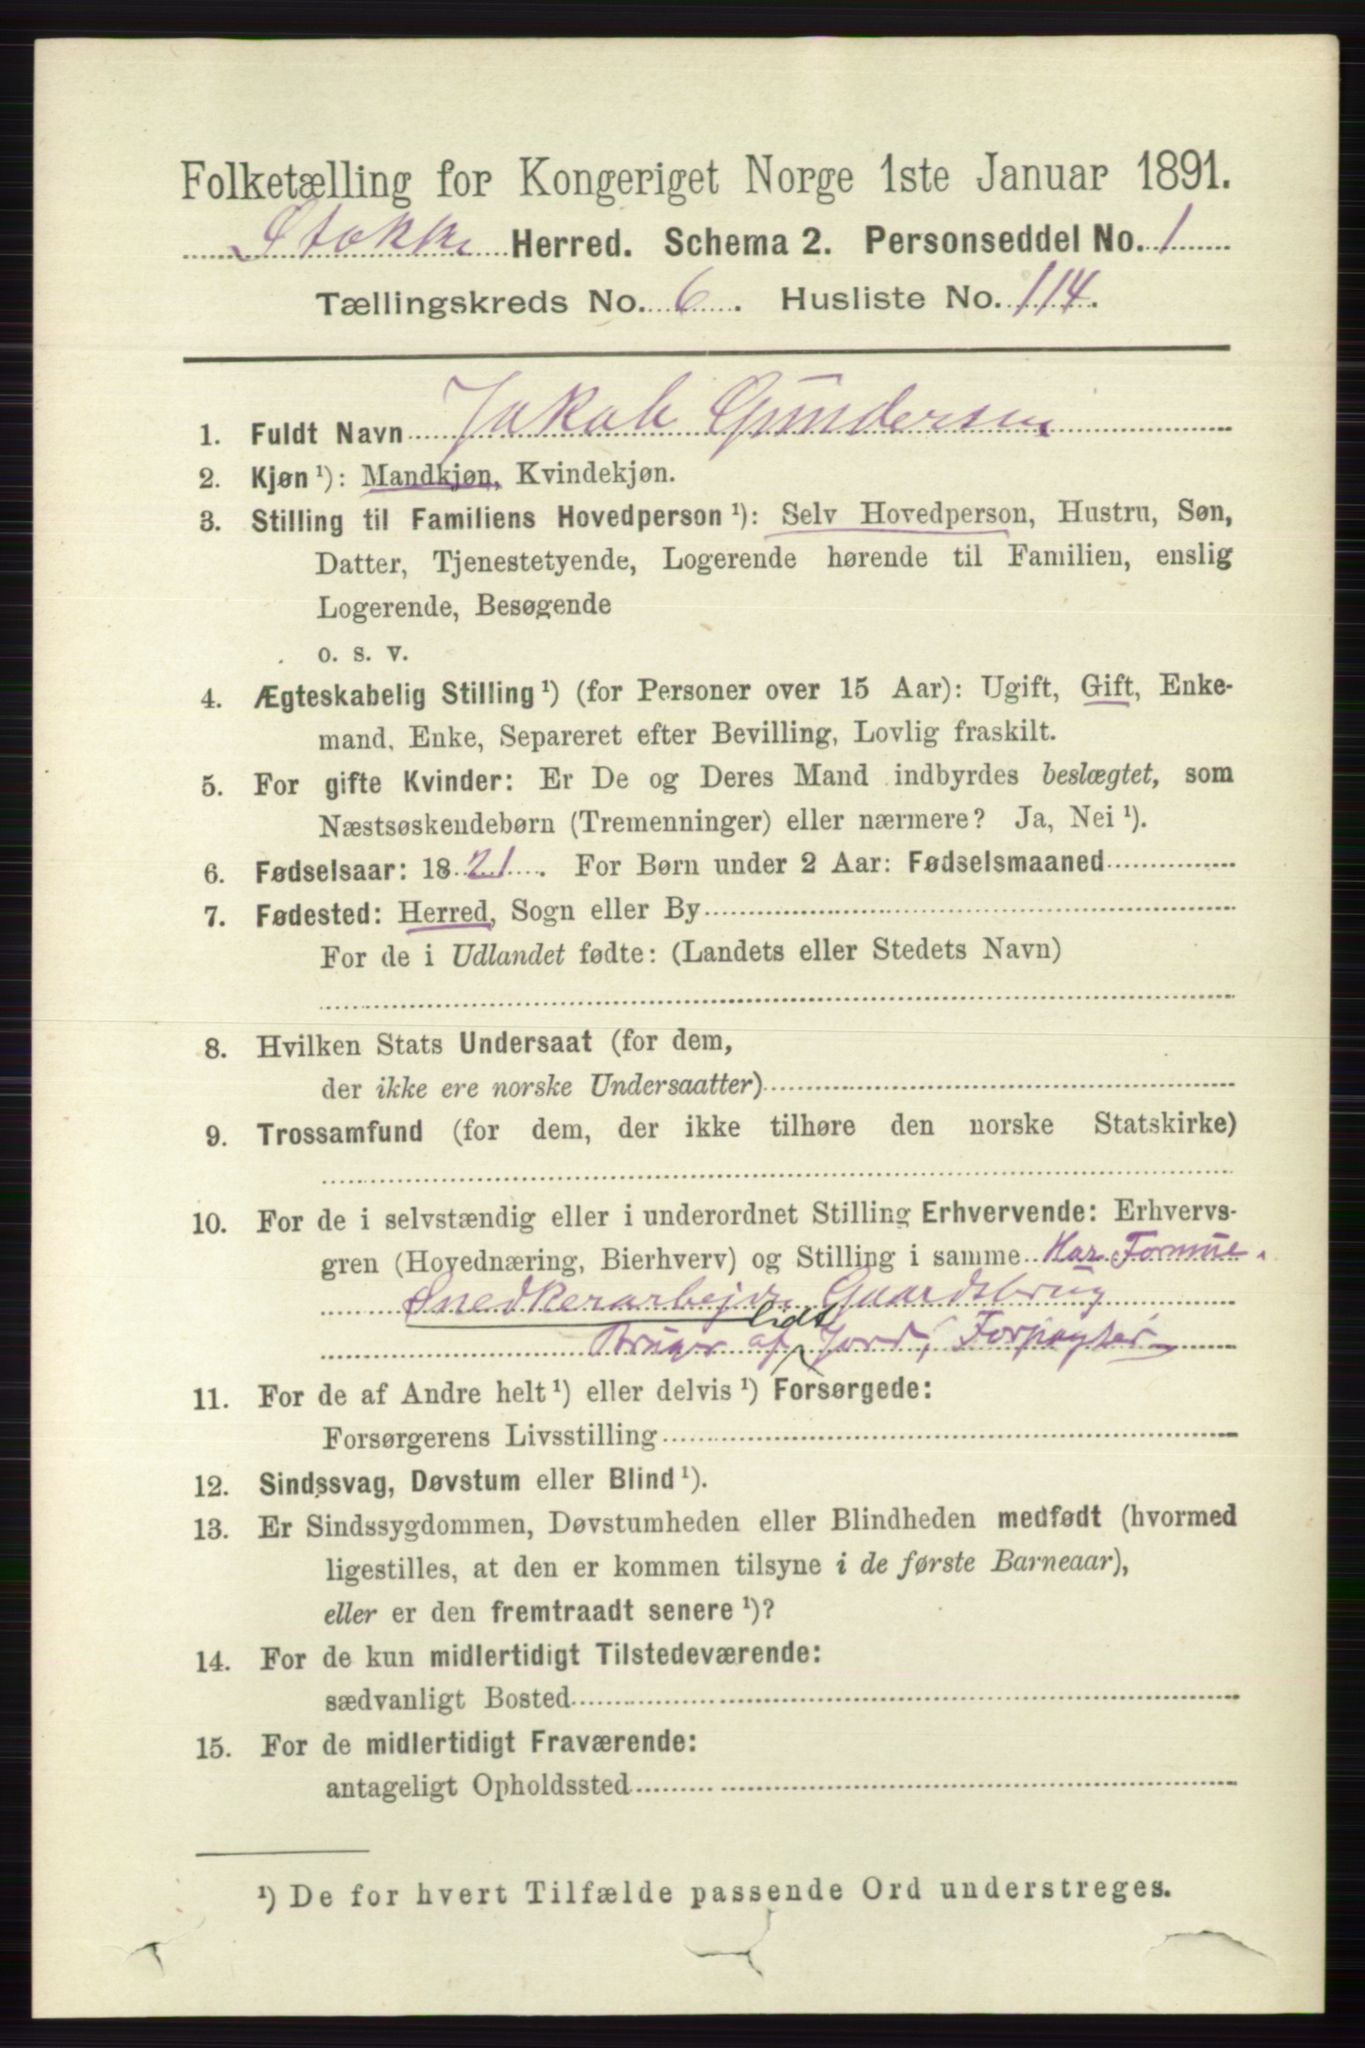 Folketælling for Kongeriget Norge 1ste Januar 1891.
Stokke Herred. Schema 2. Personseddel No. 1
Tællingskreds No. 6. Husliste No. 114.
1. Fuldt Navn Jakob Gundersen
2. Kjøn ¹): Mandkjøn, Kvindekjøn.
3. Stilling til Familiens Hovedperson ¹): Selv Hovedperson, Hustru, Søn,
Datter, Tjenestetyende, Logerende hørende til Familien, enslig
Logerende, Besøgende
o. s. v.
4. Ægteskabelig Stilling ¹) (for Personer over 15 Aar): Ugift, Gift, Enke-
mand, Enke, Separeret efter Bevilling, Lovlig fraskilt.
5. For gifte Kvinder: Er De og Deres Mand indbyrdes beslægtet, som
Næstsøskendebørn (Tremenninger) eller nærmere? Ja, Nei ¹).
6. Fødselsaar: 1821. For Børn under 2 Aar: Fødselsmaaned
7. Fødested: Herred, Sogn eller By
For de i Udlandet fødte: (Landets eller Stedets Navn)
8. Hvilken Stats Undersaat (for dem,
der ikke ere norske Undersaatter)
9. Trossamfund (for dem, der ikke tilhøre den norske Statskirke)
10. For de i selvstændig eller i underordnet Stilling Erhvervende: Erhvervs-
gren (Hovednæring, Bierhverv) og Stilling i samme Har Formue.
Snedkerarbejde, Gaardsbrug
Bruger af lidt Jord, Forpagter
11. For de af Andre helt ¹) eller delvis ¹) Forsørgede:
Forsørgerens Livsstilling
12. Sindssvag, Døvstum eller Blind ¹).
13. Er Sindssygdommen, Døvstumheden eller Blindheden medfødt (hvormed
ligestilles, at den er kommen tilsyne i de første Barneaar),
eller er den fremtraadt senere ¹)?
14. For de kun midlertidigt Tilstedeværende:
sædvanligt Bosted
15. For de midlertidigt Fraværende:
antageligt Opholdssted
¹) De for hvert Tilfælde passende Ord understreges.